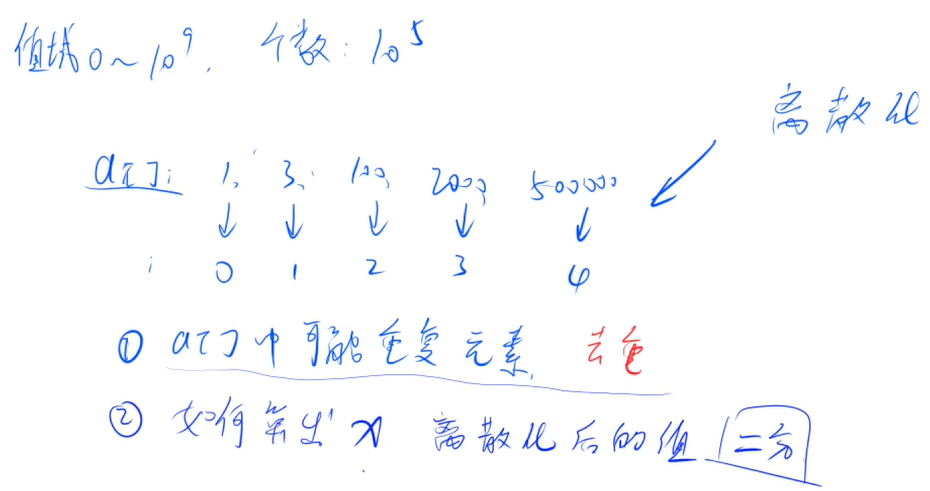 值域0~10⁹, 个数:10⁵
离散化
a[]: 1, 3, 100, 2000, 500000
↓ ↓ ↓ ↓ ↓
i 0 1 2 3 4
① a[]中可能重复元素 去重
② 如何算出x 离散化后的值 二分